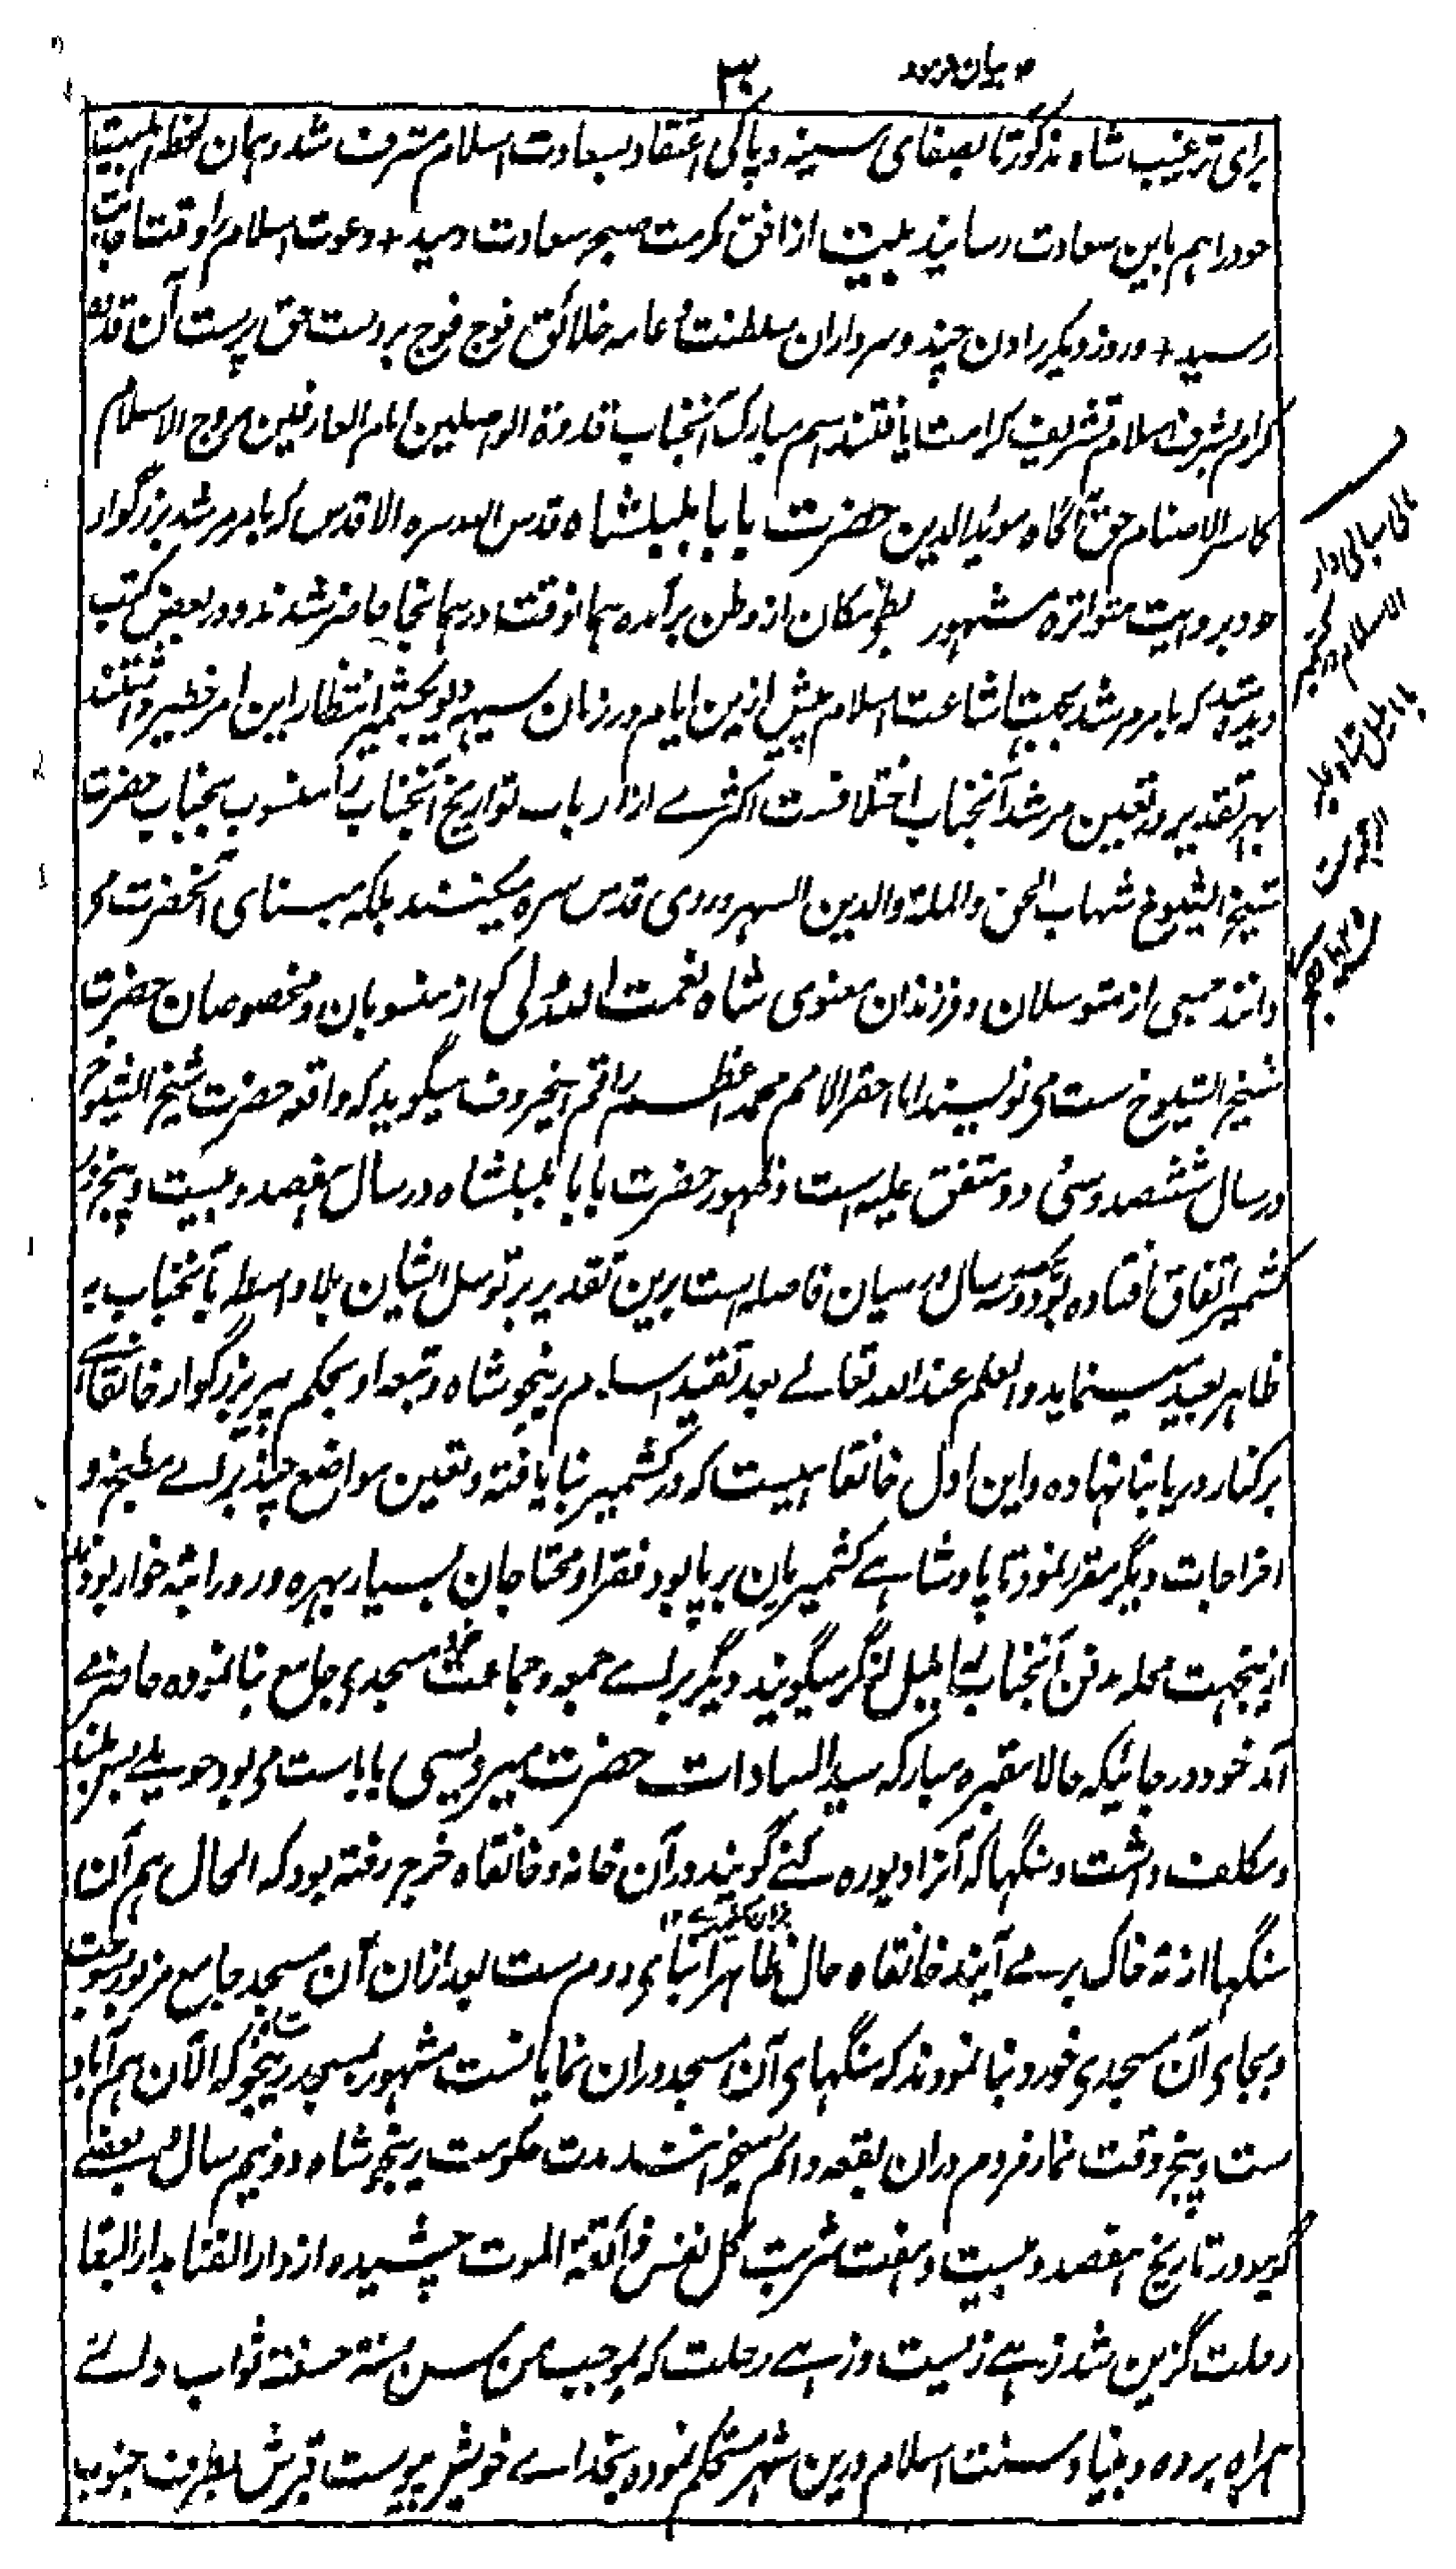 ۳۰
برای ترغیب شاه مذکور تا بصفای سینه و پاکی اعتقاد بسعادت اسلام مشرف شد و همان لحظه اهلبیت
خود را هم باین سعادت رسانید بیت از افق مکرمت صبح سعادت دمید + دعوت اسلام را وقت اجابت
رسید + و روز دیگر راون چند و سرداران سلطنت و عامه خلائق فوج فوج بر دست حق پرست آن قدوه
کرام بشرف اسلام تشریف کرامت یافتند اسم مبارک آنجناب قدوة الواصلین امام العارفین مروج الاسلام
کاسر الاصنام حق آگاه موید الدین حضرت بابا بلبلشاه قدس الله سره الاقدس که بامر مرشد بزرگوار
خود بروایت متواتره مشهور بطی مکان از وطن برآمده همانوقت در همانجا حاضر شدند و در بعض کتب
دیده شد که بامر مرشد بجهت اشاعت اسلام پیش ازین ایام در زمان سیهه دیو بکشمیر انتظار این امر خطیر داشتند
بهر تقدیر در تعین مرشد آنجناب اختلافست اکثرے از ارباب تواریخ آنجناب را منسوب بجناب حضرت
شیخ الشیوخ شهاب الحق والملة والدین السهروردی قدس سره میکنند بلکه مبنای آنحضرت می
دانند جمعی از متوسلان و فرزندان معنوی شاه نعمت الله ولی که از منسوبان و مخصوصان حضرت
شیخ الشیوخ ست می نویسند اما احقر الامم محمد اعظم راقم اینحروف میگوید که واقعه حضرت شیخ الشیوخ
در سال ششصد و سی و دو متفق علیه است و ظهور حضرت بابا بلبلشاه در سال هفصد و بیست و پنج در
کشمیر اتفاق افتاده بود سال در میان فاصله است برین تقدیر بر توسل ایشان بلا واسطه بآنجناب به
ظاهر بعید مینماید والعلم عند الله تعالے بعد تقلید اسلام رینچو شاه و تبعه او بحکم پیر بزرگوار خانقاهے
برکنار دریا بنا نهاده و این اول خانقاهیست که در کشمیر بنا یافته و تعین مواضع چند براے مطبخ و
اخراجات دیگر مقرر نمود تا پادشاهے کشمیریان برپا بود فقرا و محتاجان بسیار بهره ور و راتبه خوار بودند
ازینجهت محله مدفن آنجناب را بلبل لنگر میگویند دیگر براے جمعه و جماعت مسجدی جامع بنا نموده حاضرے
آمد خود در جائیکه حالا مقبره مبارکه سید السادات حضرت میر ویسی باباست می بود حویلے بس بلند
و مکلف داشت و سنگها که آنرا دیوره کنے گویند در آن خانه و خانقاه خرج رفته بود که الحال هم آن
سنگها از ته خاک برمے آیند خانقاه حال ظاهرا بنای دوم ست بعد ازان آن مسجد جامع مزبور بسوخت
و بجای آن مسجدی خورد بنا نمودند که سنگهای آن مسجد دران نمایانست مشهور بمسجد رینچو که الآن هم آباد
ست و پنج وقت نماز مردم دران بقعه دائم میخوانند مدت حکومت رینچو شاه دو نیم سال بعضے
گویند در تاریخ هفصد و بیست و هفت شربت کل نفس ذائقة الموت چشیده از دار الفنا بدار البقا
رحلت گزین شد زهے زیست و زهے رحلت که بموجب من سن سنة حسنة ثواب
همراه برده و بنیاد سنت اسلام درین شهر مستحکم نموده بخداے خویش پیوست قبرش بطرف جنوب